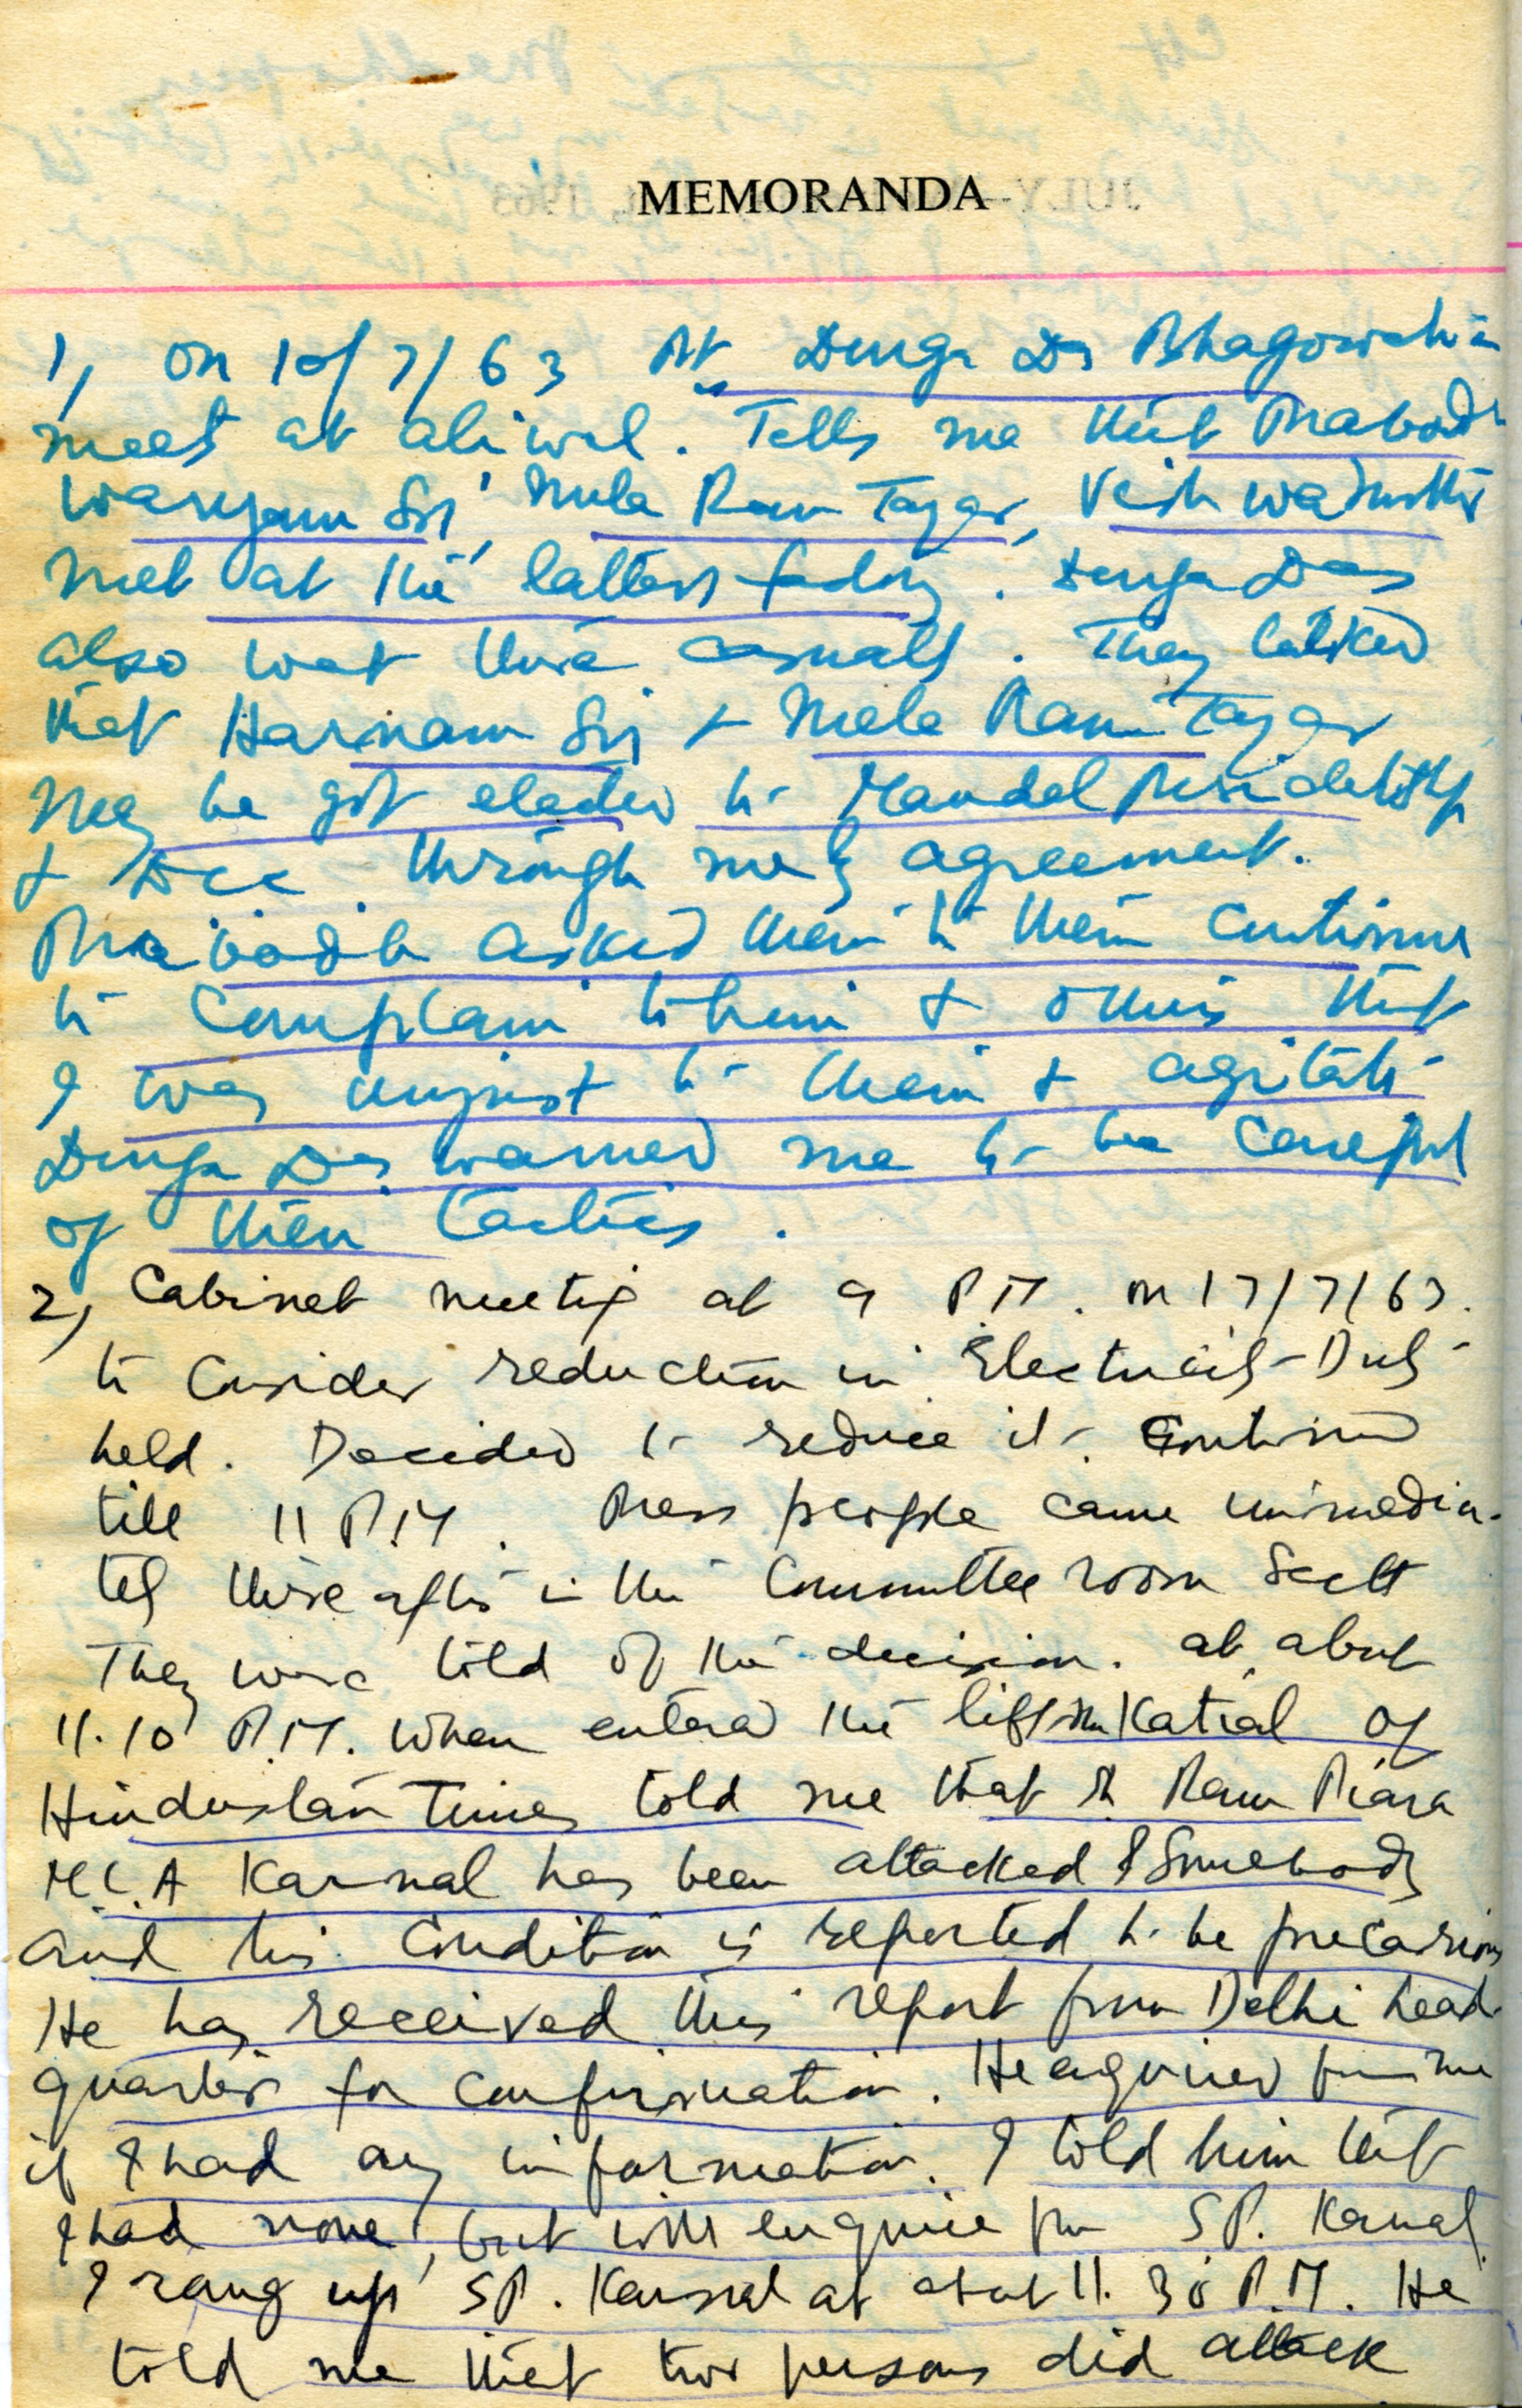 MEMORANDA
1, On 10/7/63 Pt. Durga Das Bhagowalia
meets at Aliwal. Tells me that Prabodh
Waryam Singh, Mela Ram Tayar, Vishwa
met at the latters factory. Durga Das
also went there casually. They talked
that Harnam Singh + Mela Ram Tayar
may be got elected to Mandal Presidentship
+ DCC through my agreement.
Prabodh asked them to them continue
to complain to him + others that
I was unjust to them + agitate
Durga Das warned me to be careful
of their tactics.
2, Cabinet meeting at 9 P.M. on 17/7/63.
to Consider reduction in Electricity-Duty
held. Decided to reduce it. Continued
till 11 P.M. Press people came immedia-
tely thereafter in the Committee room Sectt
They were told of the decision. At about
11.10 P.M. when entered the lift Katial of
Hindustan Times told me that Sh Ram Piara
M.L.A Karnal has been attacked & Somebody
and his condition is reported to be precarious
He has received this report from Delhi head-
quarter for confirmation. He enquired from me
if I had any information. I told him that
I had none, but will enquire from S.P. Karnal.
I rang up S.P. Karnal at about 11.30 P.M. He
told me that two persons did attack